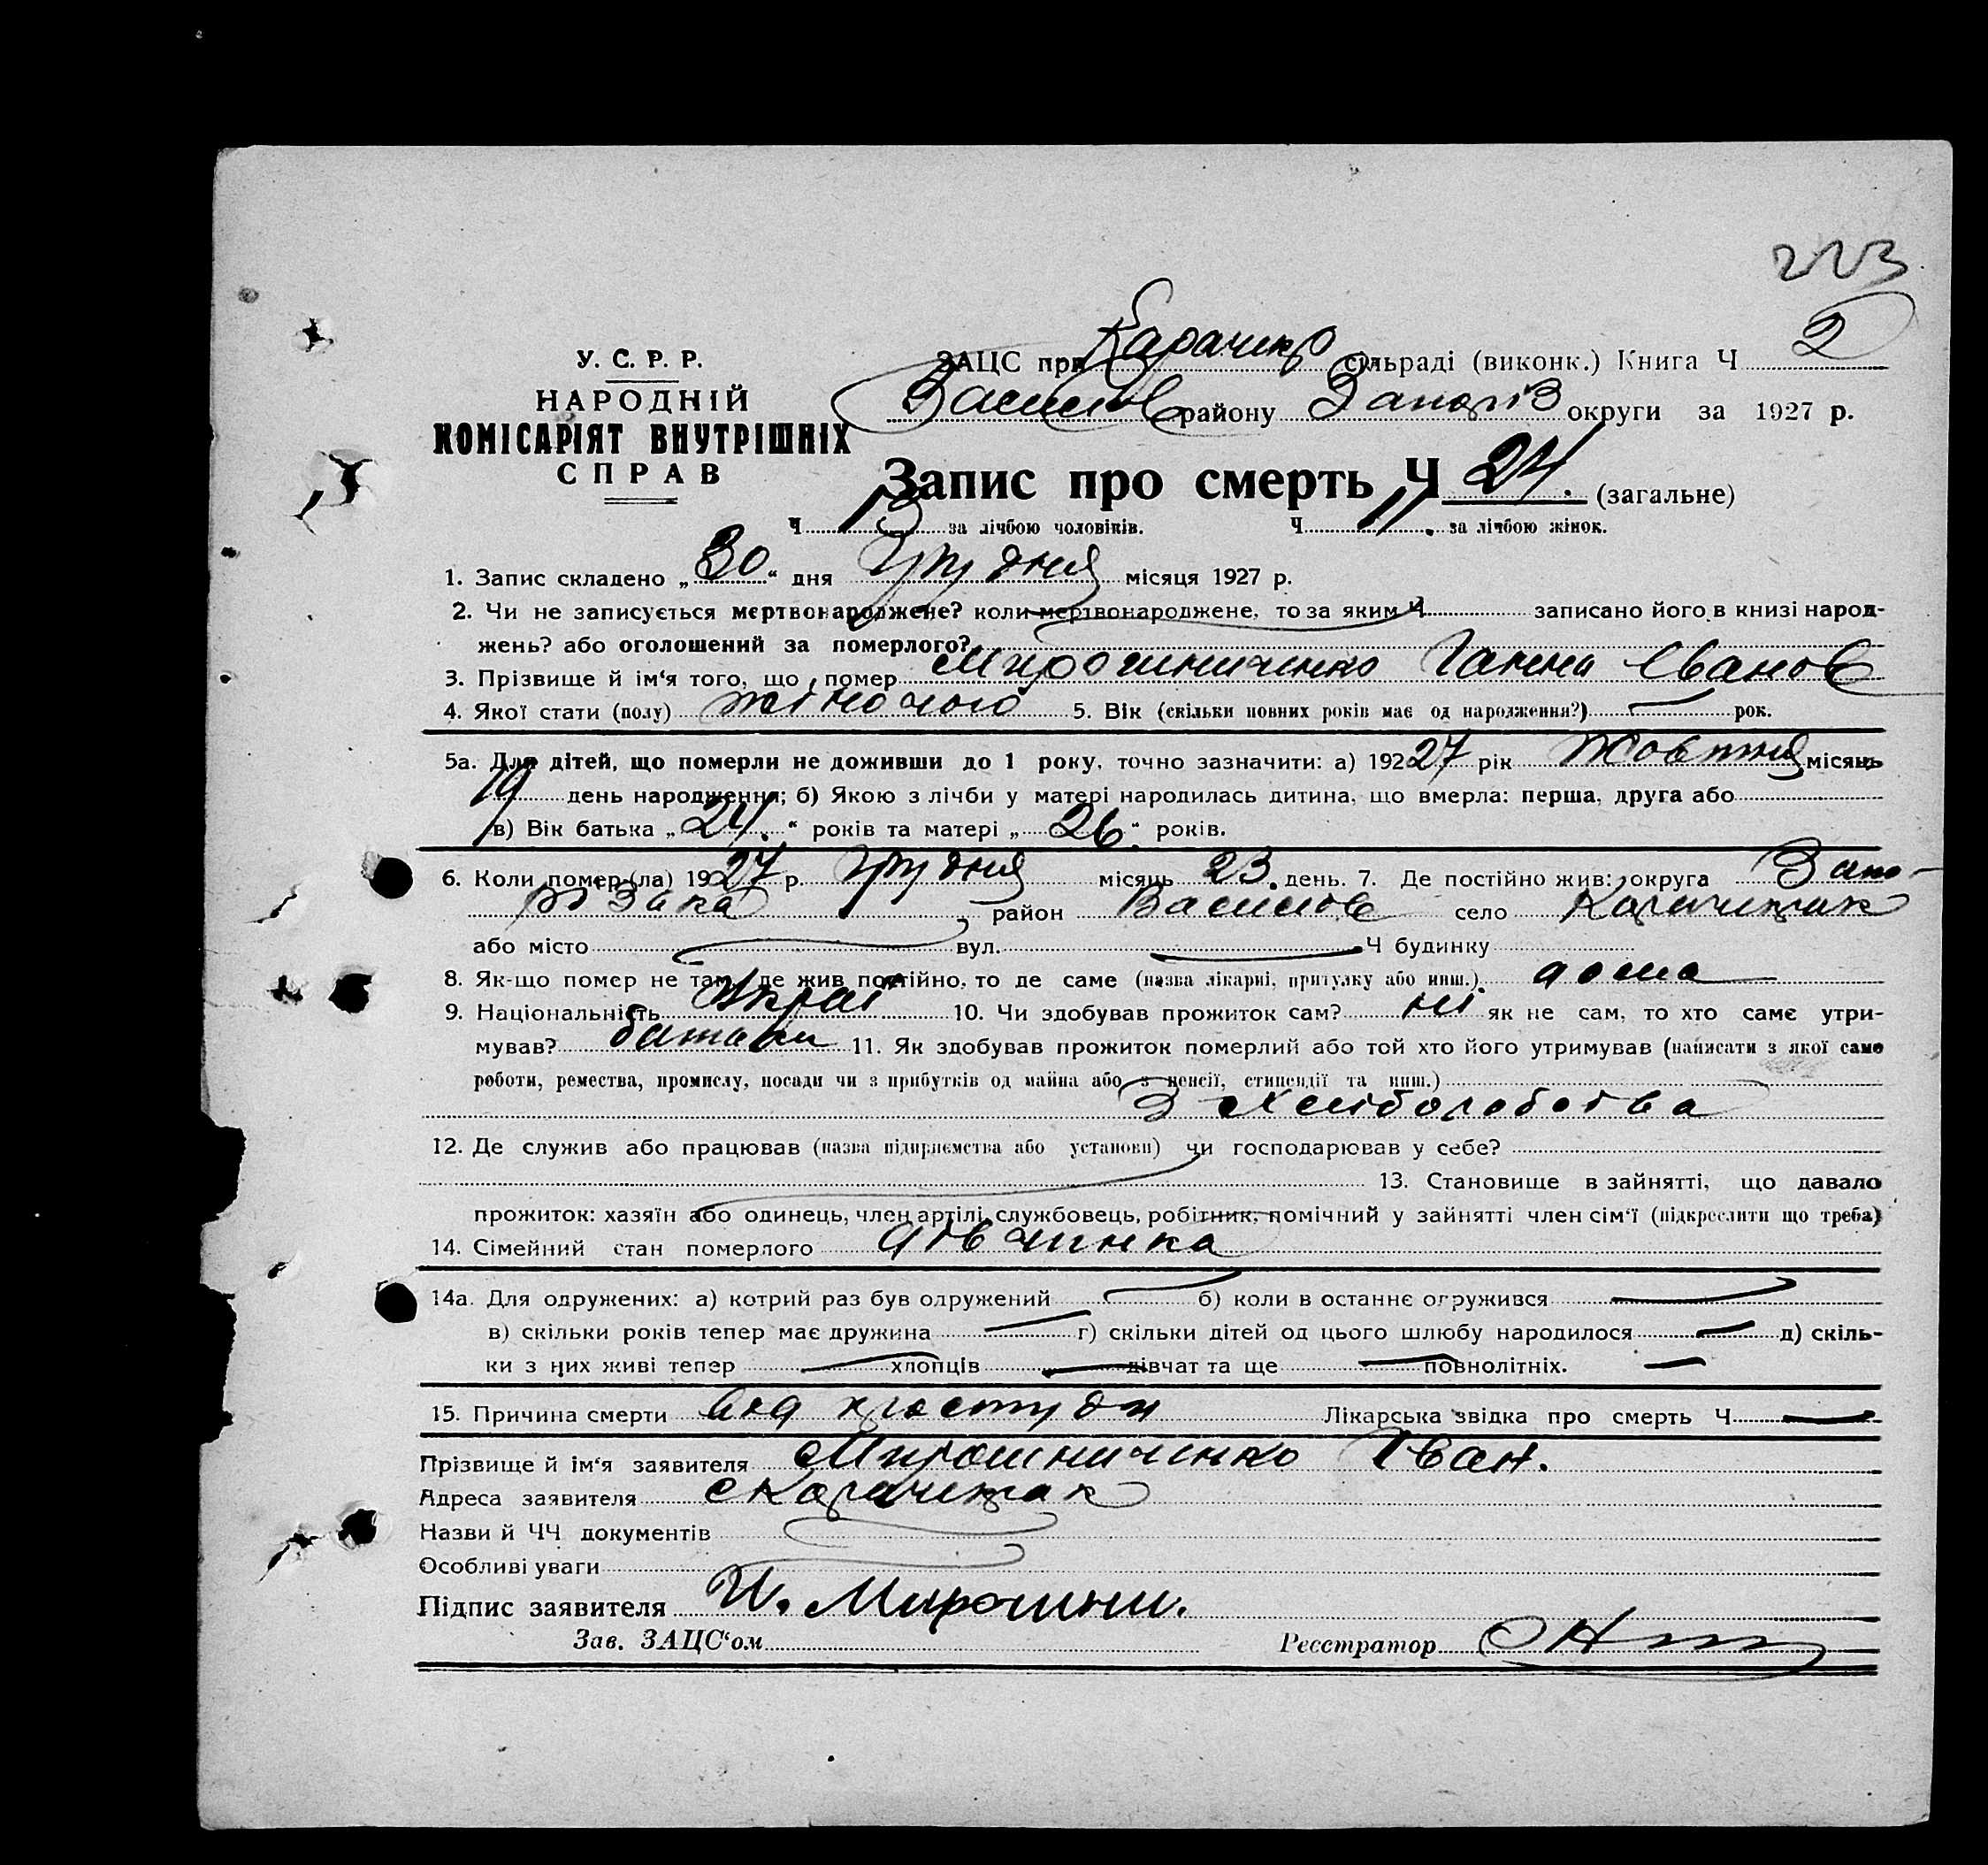 223
У. С. Р. Р.
НАРОДНІЙ
КОМІСАРІЯТ ВНУТРІШНІХ
СПРАВ
ЗАЦС при Карачекр сільраді (виконк.) Книга Ч 2
Василів району Запоріз округи за 1927 р.
Запис про смерть Ч 24. (загальне)
Ч 13 за лічбою чоловіків. Ч 11. за лічбою жінок.
1. Запис складено „30“ дня Грудня місяця 1927 р.
2. Чи не записується мертвонароджене? коли мертвонароджене, то за яким Ч записано його в книзі народ-
жень? або оголошений за померлого?
3. Прізвище й ім‘я того, що помер Мирошниченко Ганна Іванов
4. Якої стати (полу) жіночого 5. Вік (скільки повних років має од народження?) — рок.
5а. Для дітей, що померли не доживши до 1 року, точно зазначити: а) 19227 рік Жовтня місяць
19 день народження; б) Якою з лічби у матері народилась дитина, що вмерла: перша, друга або
в) Вік батька „24.“ років та матері „26.“ років.
6. Коли помер (ла) 1927 р. Грудня місяць 23. день. 7. Де постійно жив: округа Запо-
різака, район Василів село Карачекрак
або місто вул. Ч будинку
8. Як-що помер не там, де жив постійно, то де саме (назва лікарні, притулку або инш.) дома
9. Національність Украї 10. Чи здобував прожиток сам? ні як не сам, то хто саме утри-
мував? батьки 11. Як здобував прожиток померлий або той хто його утримував (написати з якої саме
роботи, ремества, промислу, посади чи з прибутків од майна або з пенсії, стипендії та инш.)
З хліборобства
12. Де служив або працював (назва підприємства або установи) чи господарював у себе?
13. Становище в зайнятті, що давало
прожиток: хазяїн або одинець, член артілі, службовець, робітник, помічний у зайнятті член сім‘ї (підкреслити що треба)
14. Сімейний стан померлого дівчинка
14а. Для одружених: а) котрий раз був одружений — б) коли в останнє огружився —
в) скільки років тепер має дружина — г) скільки дітей од цього шлюбу народилося — д) скіль-
ки з них живі тепер — хлопців — дівчат та ще — повнолітніх. —
15. Причина смерти від простуди Лікарська звідка про смерть Ч —
Прізвище й ім‘я заявителя Мирошниченко Іван.
Адреса заявителя с Карачекрак
Назви й ЧЧ документів
Особливі уваги
Підпис заявителя И. Мирошни.
Зав. ЗАЦС‘ом Реєстратор